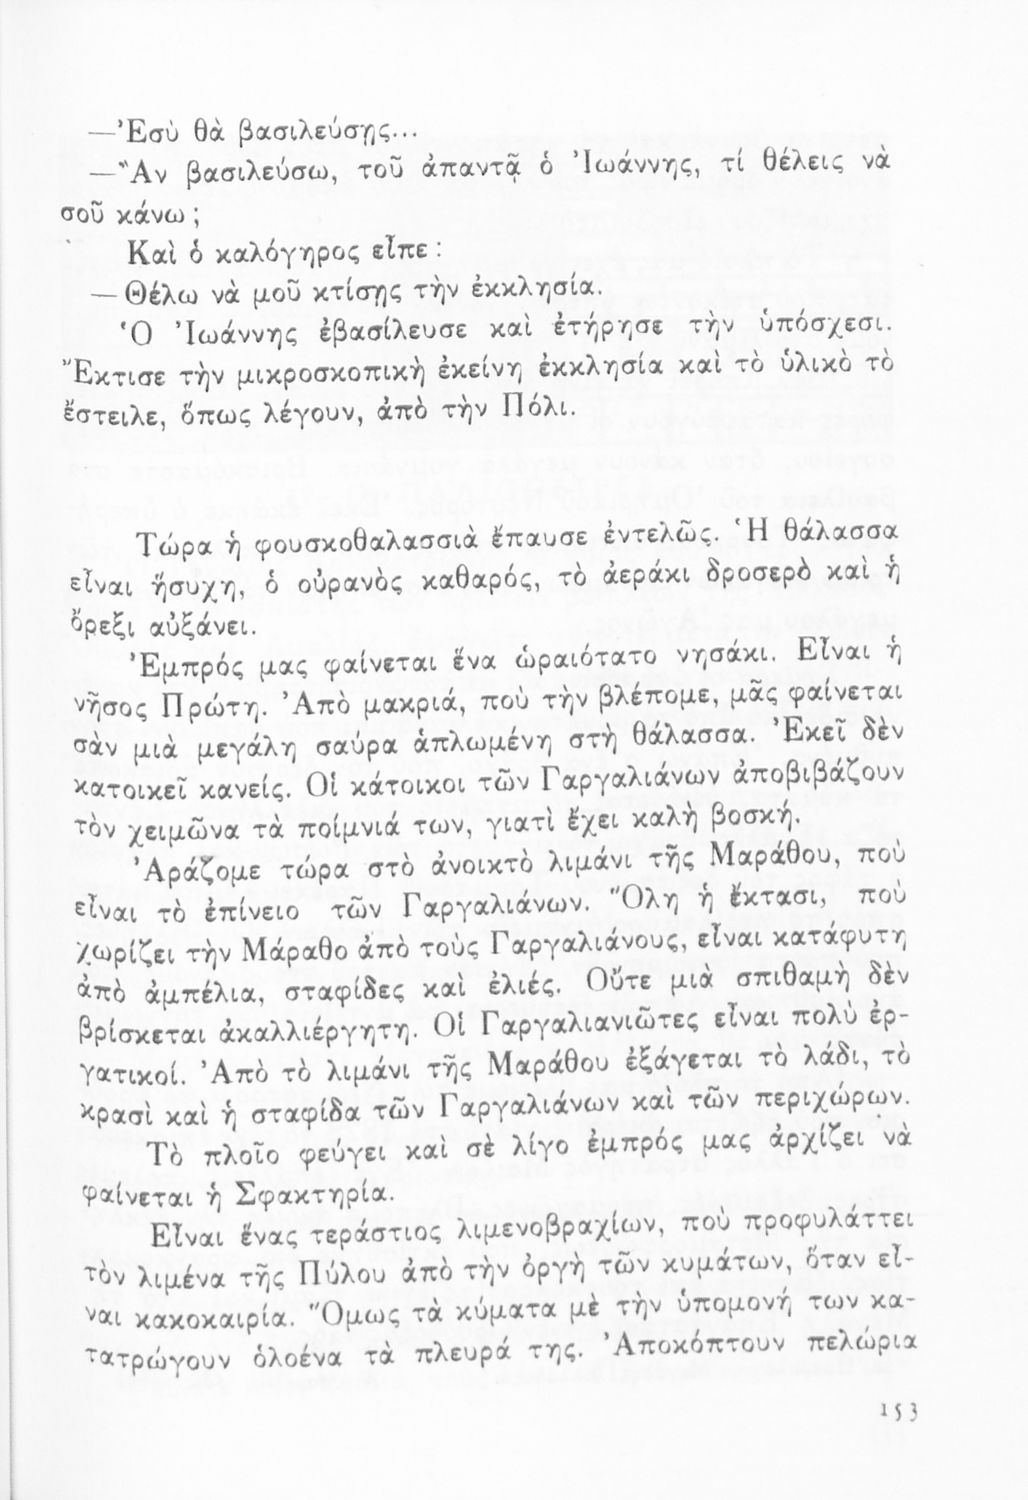 —Ἐσὺ θὰ βασιλεύσῃς...
—Ἂν βασιλεύσω, τοῦ ἀπαντᾷ ὁ Ἰωάννης, τί θέλεις νὰ
σοῦ κάνω;
Καὶ ὁ καλόγηρος εἶπε:
—Θέλω νὰ μοῦ κτίσῃς τὴν ἐκκλησία.
Ὁ Ἰωάννης ἐβασίλευσε καὶ ἐτήρησε τὴν ὑπόσχεσι.
Ἔκτισε τὴν μικροσκοπικὴ ἐκείνη ἐκκλησία καὶ τὸ ὑλικὸ τὸ
ἔστειλε, ὅπως λέγουν, ἀπὸ τὴν Πόλι.
Τώρα ἡ φουσκοθαλασσιὰ ἔπαυσε ἐντελῶς. Ἡ θάλασσα
εἶναι ἥσυχη, ὁ οὐρανὸς καθαρός, τὸ ἀεράκι δροσερὸ καὶ ἡ
ὄρεξι αὐξάνει.
Ἐμπρός μας φαίνεται ἕνα ὡραιότατο νησάκι. Εἶναι ἡ
νῆσος Πρώτη. Ἀπὸ μακριά, ποὺ τὴν βλέπομε, μᾶς φαίνεται
σὰν μιὰ μεγάλη σαύρα ἁπλωμένη στὴ θάλασσα. Ἐκεῖ δὲν
κατοικεῖ κανείς. Οἱ κάτοικοι τῶν Γαργαλιάνων ἀποβιβάζουν
τὸν χειμῶνα τὰ ποίμνιά των, γιατὶ ἔχει καλὴ βοσκή.
Ἀράζομε τώρα στὸ ἀνοικτὸ λιμάνι τῆς Μαράθου, ποὺ
εἶναι τὸ ἐπίνειο τῶν Γαργαλιάνων. Ὅλη ἡ ἔκτασι, ποὺ
χωρίζει τὴν Μάραθο ἀπὸ τοὺς Γαργαλιάνους, εἶναι κατάφυτη
ἀπὸ ἀμπέλια, σταφίδες καὶ ἐλιές. Οὔτε μιὰ σπιθαμὴ δὲν
βρίσκεται ἀκαλλιέργητη. Οἱ Γαργαλιανιῶτες εἶναι πολὺ ἐρ-
γατικοί. Ἀπὸ τὸ λιμάνι τῆς Μαράθου ἐξάγεται τὸ λάδι, τὸ
κρασὶ καὶ ἡ σταφίδα τῶν Γαργαλιάνων καὶ τῶν περιχώρων.
Τὸ πλοῖο φεύγει καὶ σὲ λίγο ἐμπρός μας ἀρχίζει νὰ
φαίνεται ἡ Σφακτηρία.
Εἶναι ἕνας τεράστιος λιμενοβραχίων, ποὺ προφυλάττει
τὸν λιμένα τῆς Πύλου ἀπὸ τὴν ὀργὴ τῶν κυμάτων, ὅταν εἶ-
ναι κακοκαιρία. Ὅμως τὰ κύματα μὲ τὴν ὑπομονή των κα-
τατρώγουν ὁλοένα τὰ πλευρά της. Ἀποκόπτουν πελώρια
153